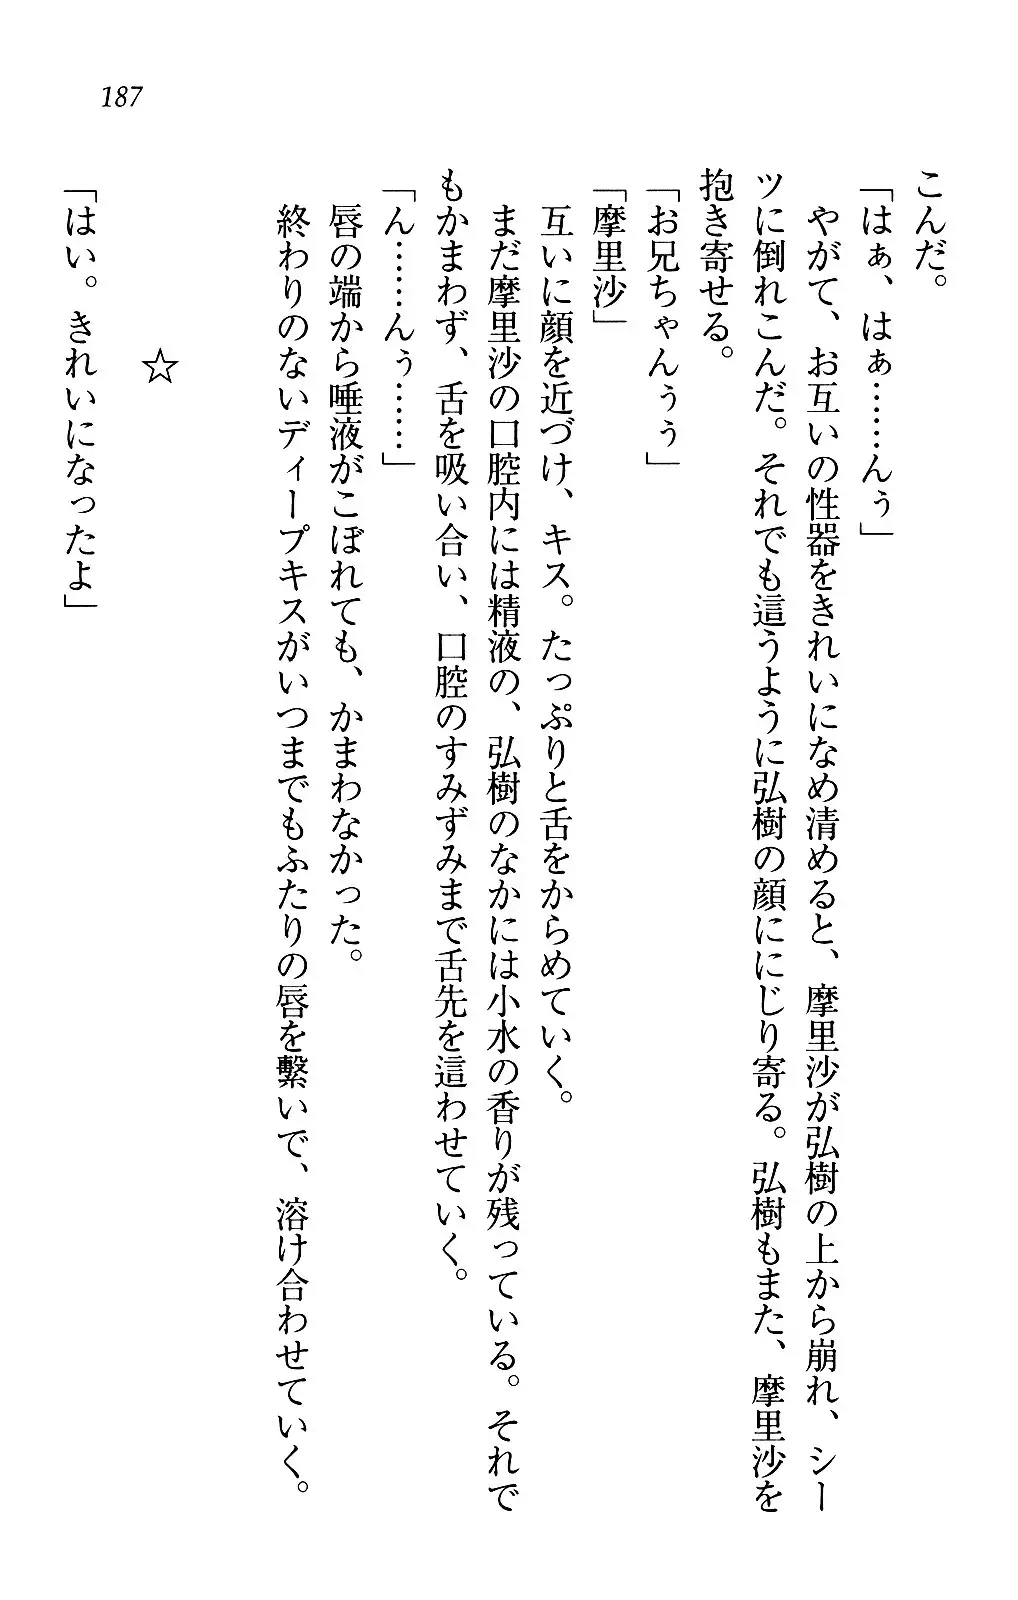 187
こんだ。
「はぁ、はぁ……んぅ」
やがて、お互いの性器をきれいになめ清めると、摩里沙が弘樹の上から崩れ、シー
ツに倒れこんだ。それでも這うように弘樹の顔ににじり寄る。弘樹もまた、摩里沙を
抱き寄せる。
「お兄ちゃんぅぅ」
「摩里沙」
互いに顔を近づけ、キス。たっぷりと舌をからめていく。
まだ摩里沙の口腔内には精液の、弘樹のなかには小水の香りが残っている。それで
もかまわず、舌を吸い合い、口腔のすみずみまで舌先を這わせていく。
「ん……んぅ……」
唇の端から唾液がこぼれても、かまわなかった。
終わりのないディープキスがいつまでもふたりの唇を繋いで、溶け合わせていく。
☆
「はい。きれいになったよ」